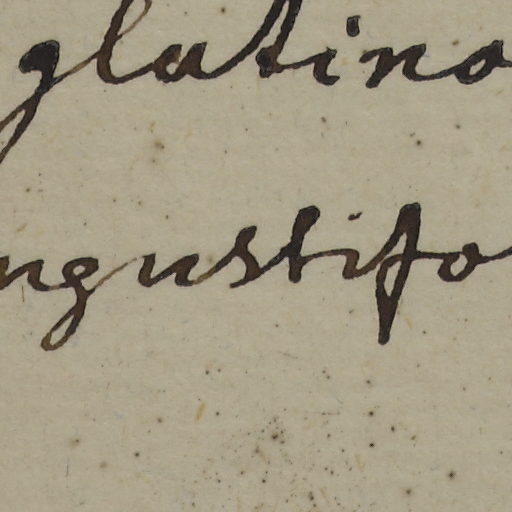 glatino
ngustifo